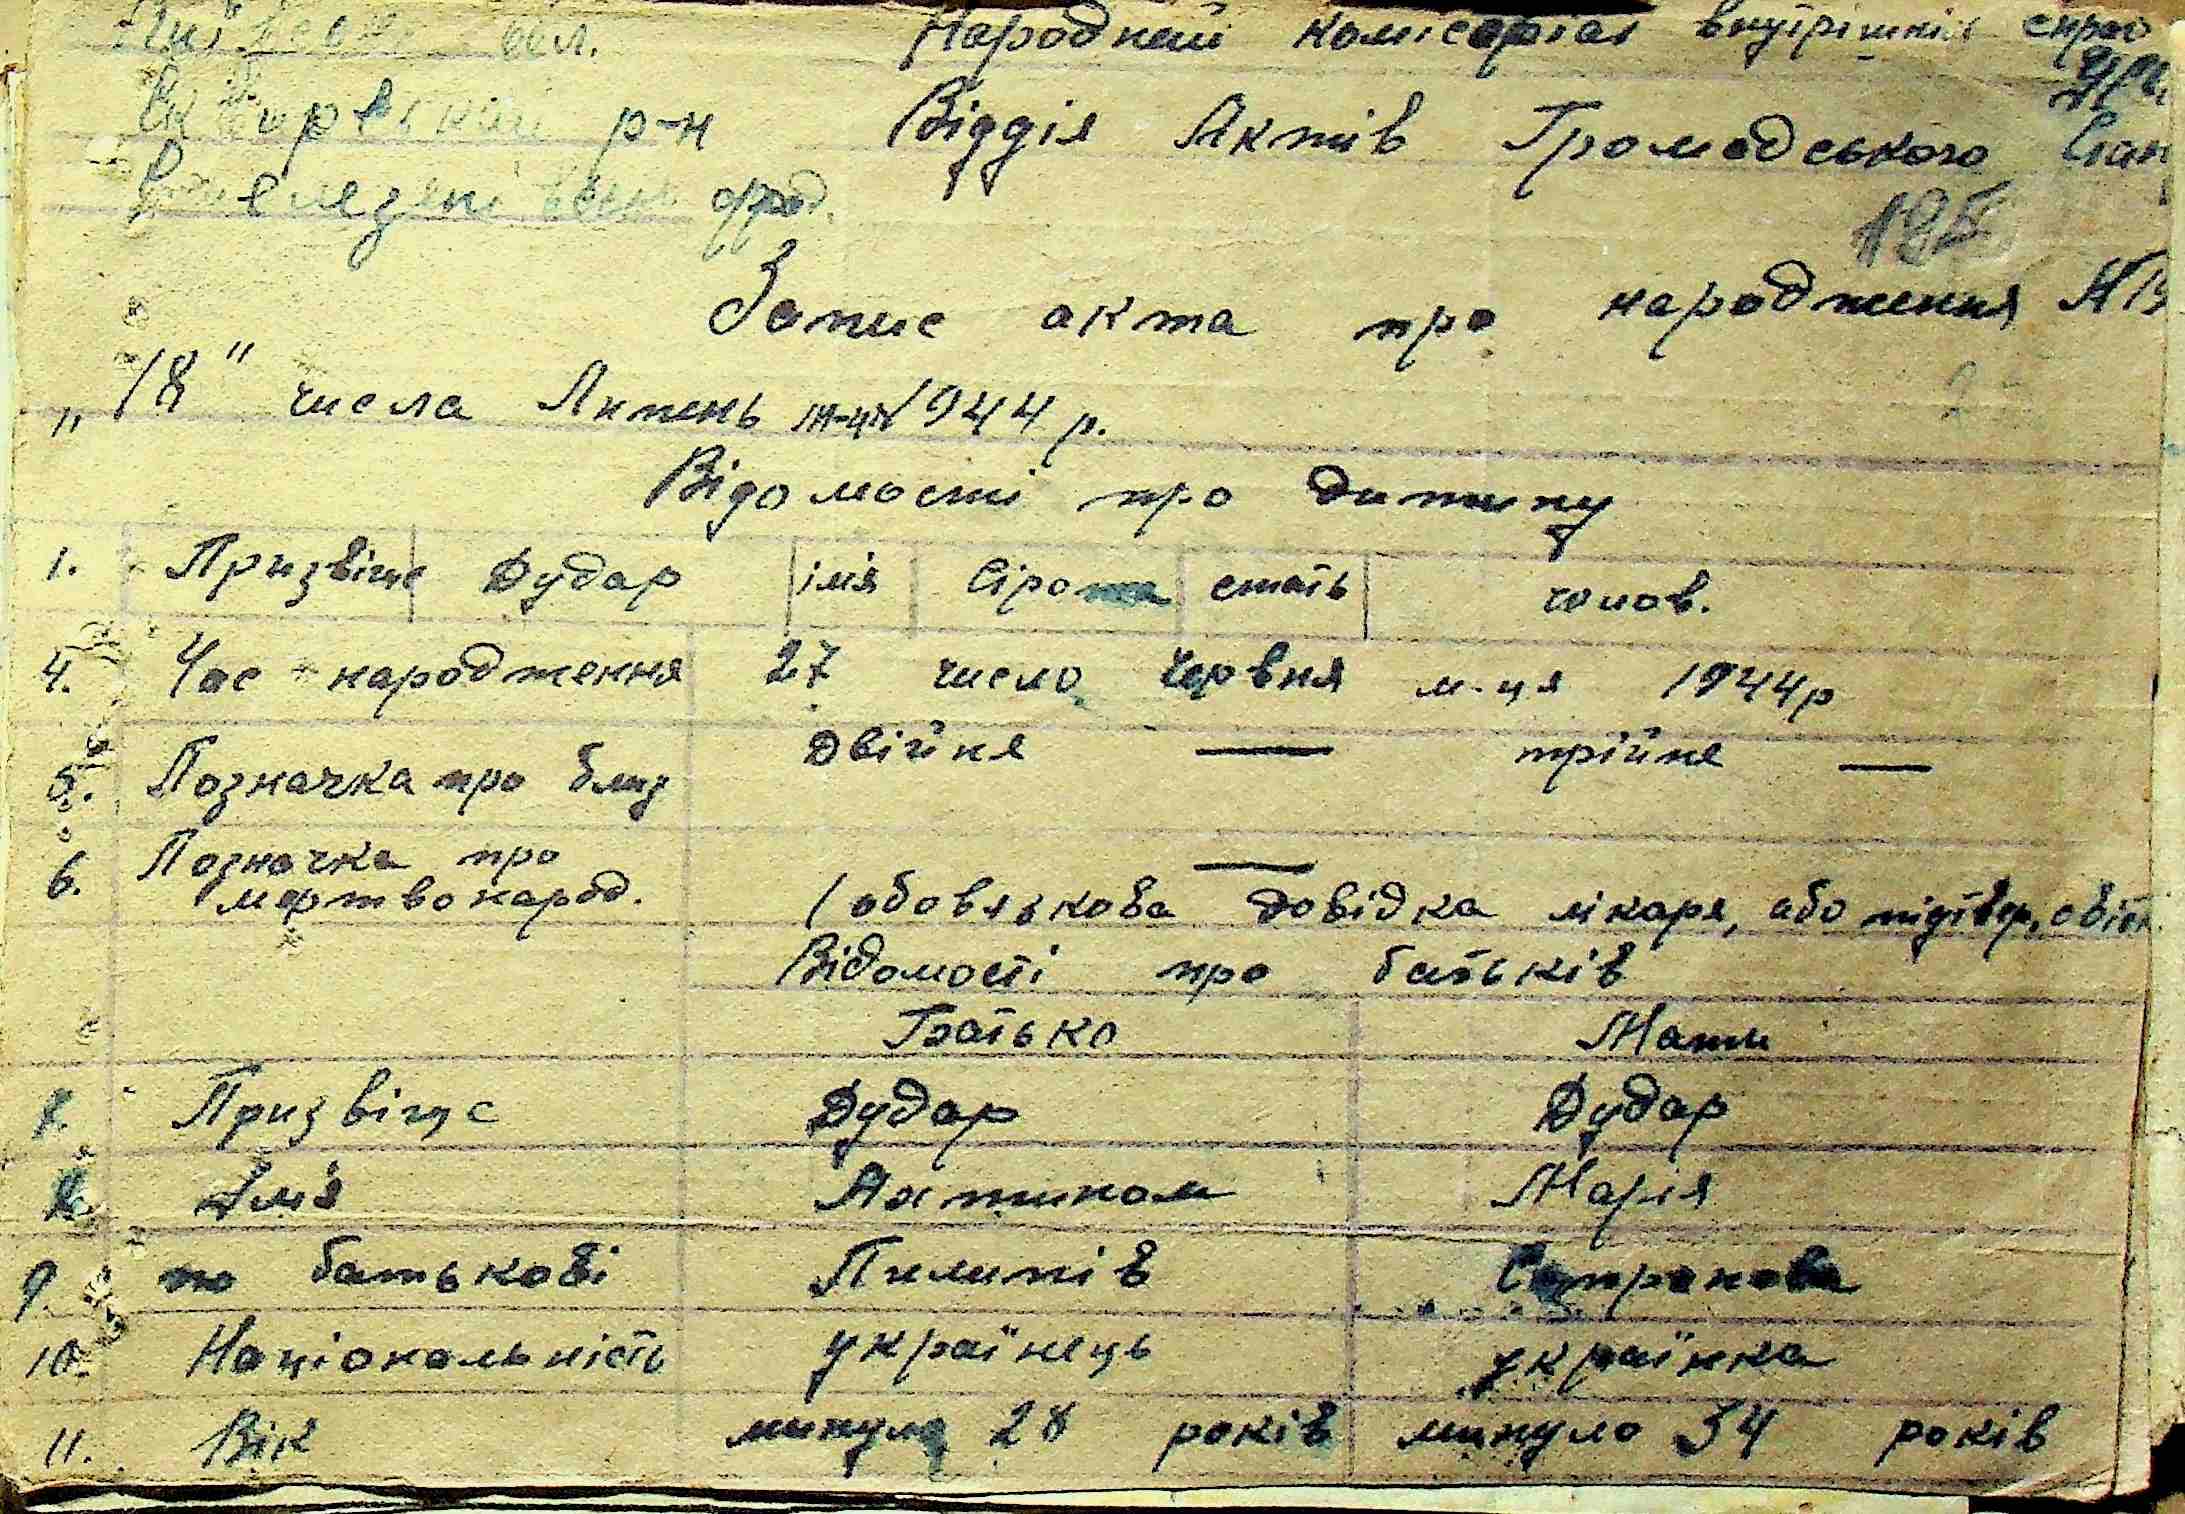 обл. Народней комісаріат внутрішніх справ
р-н Відділ Актів Громадського Стан
125
Запис акта про народження №
"18" числа Липень м-ця 1944 р.
Відомості про дитину
1. Призвіще Дудар імя Сірота стать чолов.
4. Час народження 27 число Червня м-ця 1944р
5. Позначка про близ Двійня — трійня —
6. Позначка про мертвонарод. —
(обовязкова довідка лікаря, або підтвер. свідк.
Відомості про батьків
Батько Мати
7. Призвіще Дудар Дудар
8. Імя Марія
9. по батькові Пилипів
10. Національність українець українка
11. Вік минуло 28 років минуло 34 років